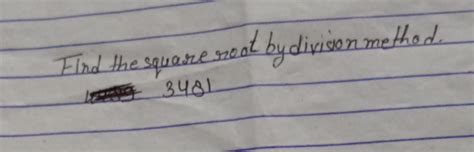 Find the square root by division method.
3481